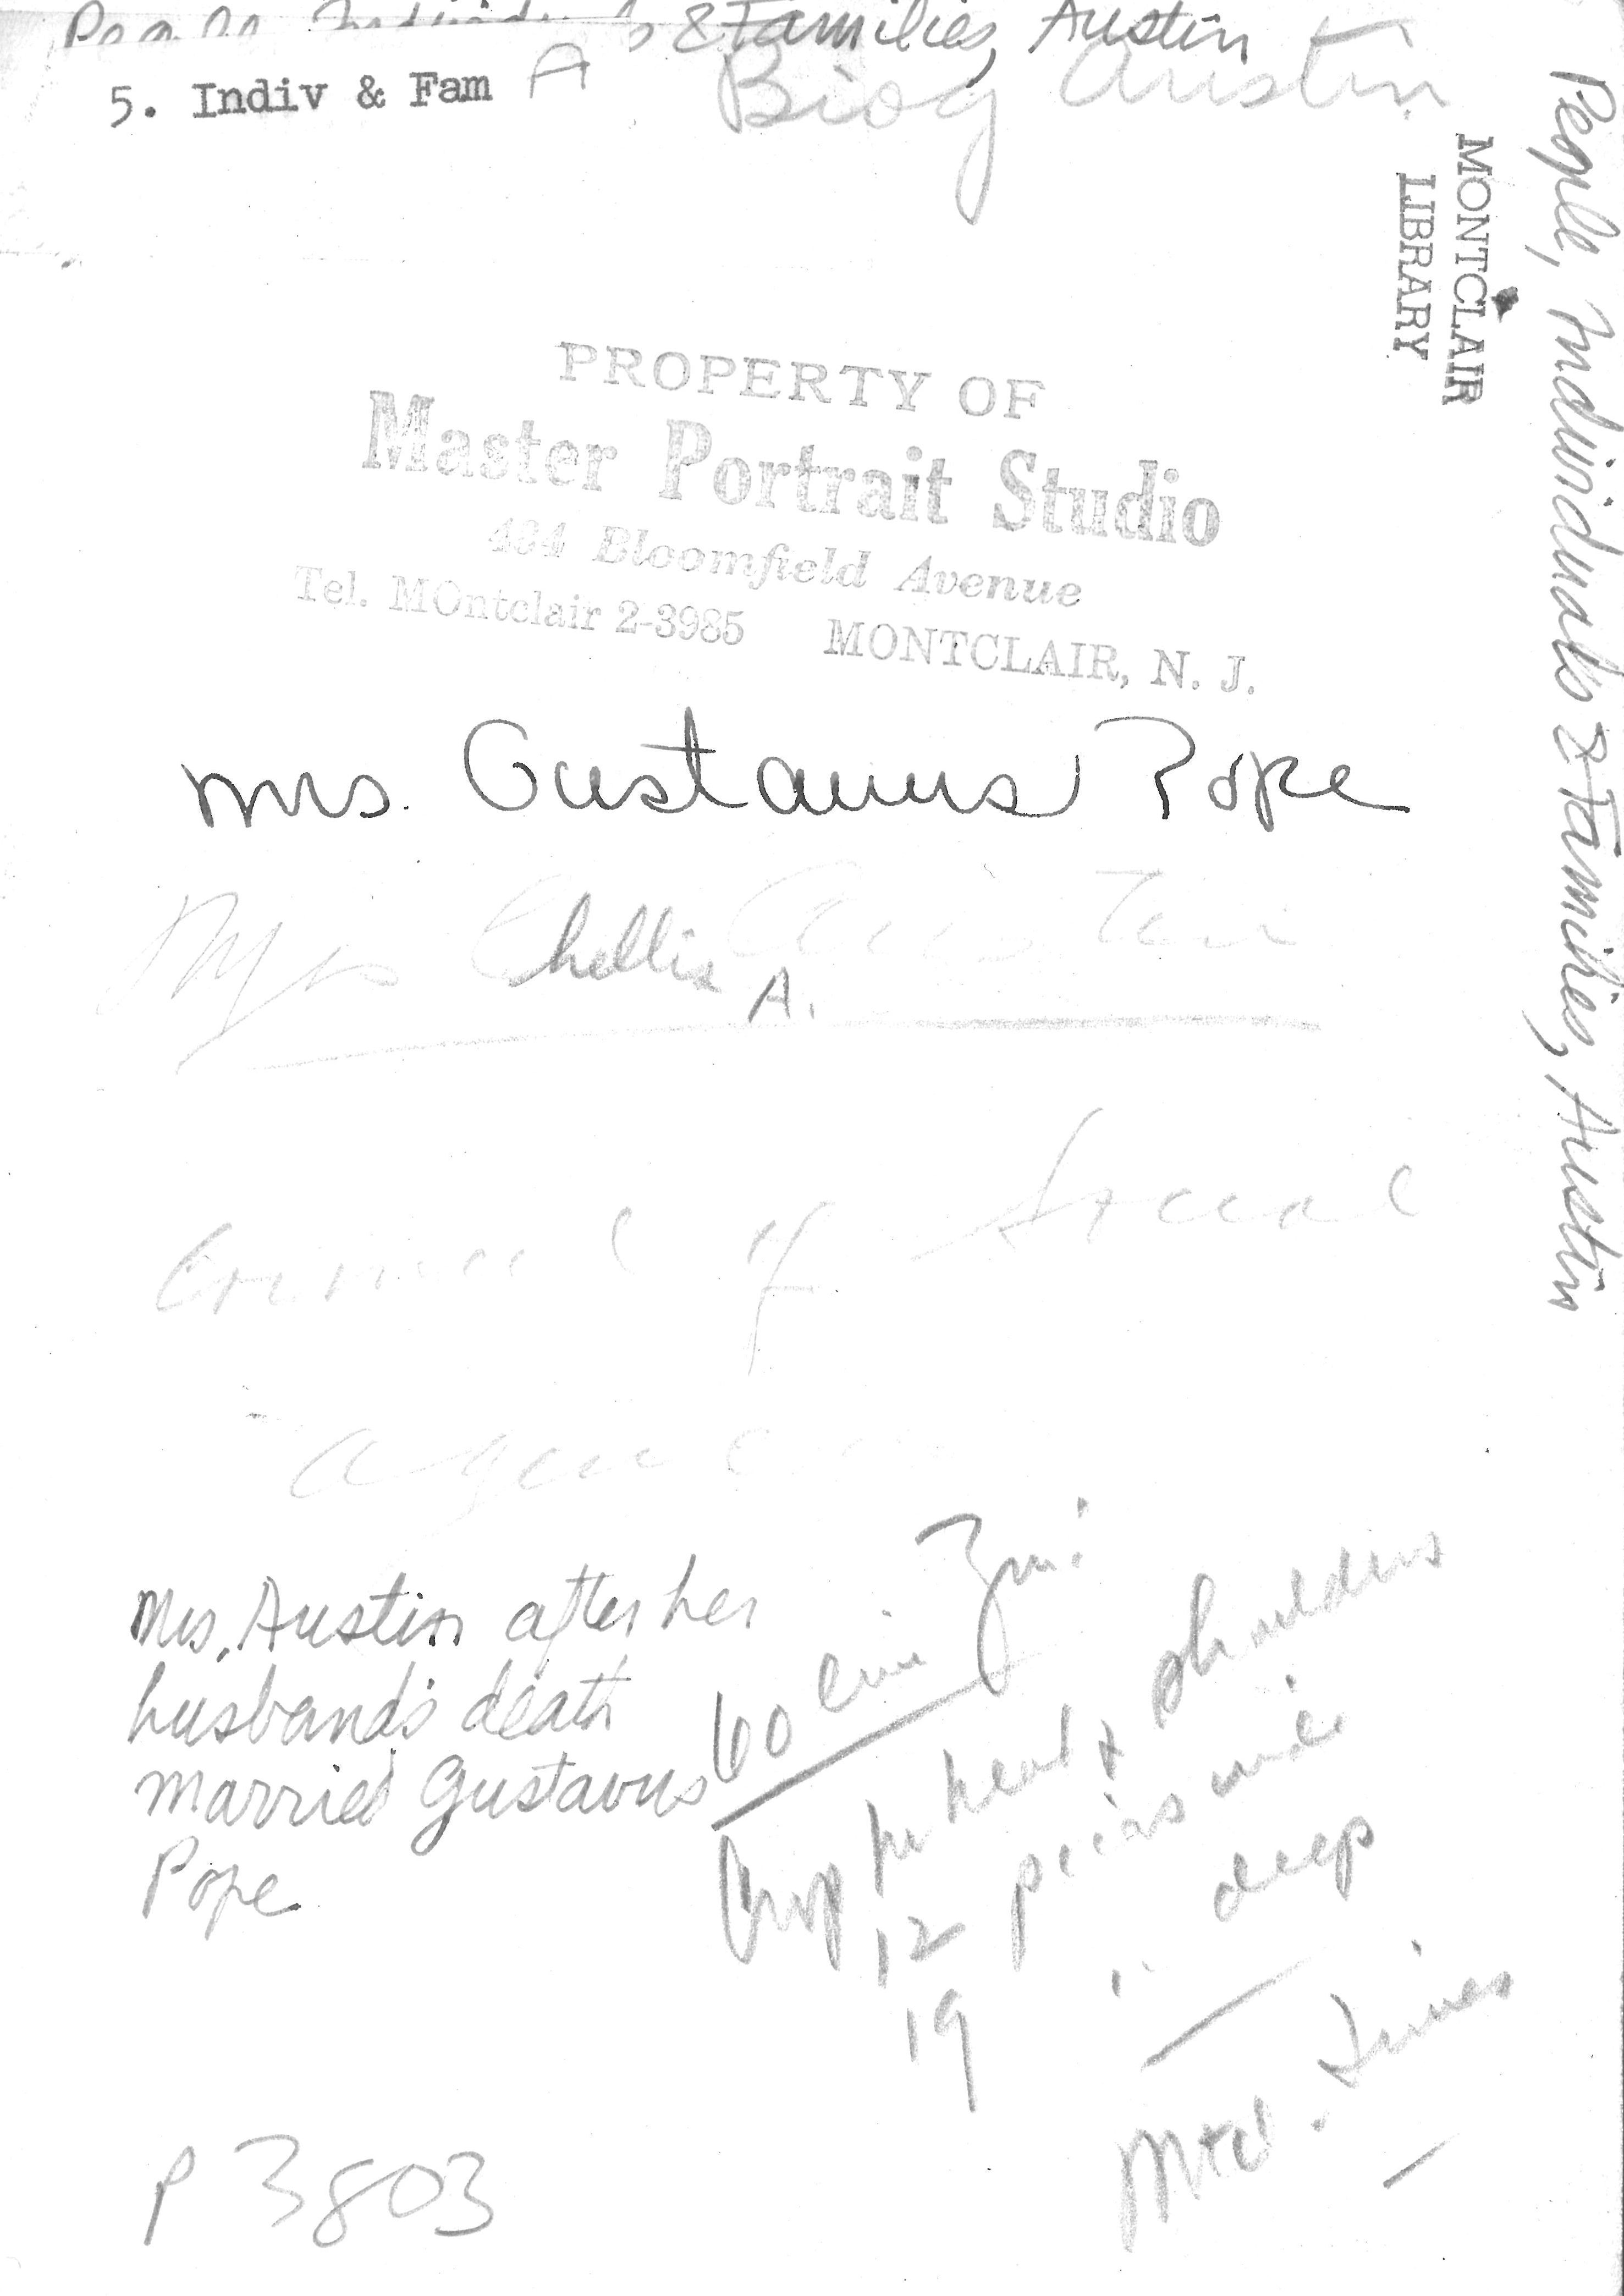 People, Individuals & Families, Austin
5. Indiv & Fam A Biog Austin
MONTCLAIR
LIBRARY
People, Individuals & Families, Austin
PROPERTY OF
Master Portrait Studio
494 Bloomfield Avenue
Tel. MOntclair 2-3985 MONTCLAIR, N. J.
Mrs. Gustavus Pope
Mrs Chellis Austin
A.
Council of Social
Agenc
Mrs. Austin after her
husband's death
married Gustavus
Pope
60
Crop to head & shoulders
12 picas wide
19 " deep
Mtcl. Times
P 3803